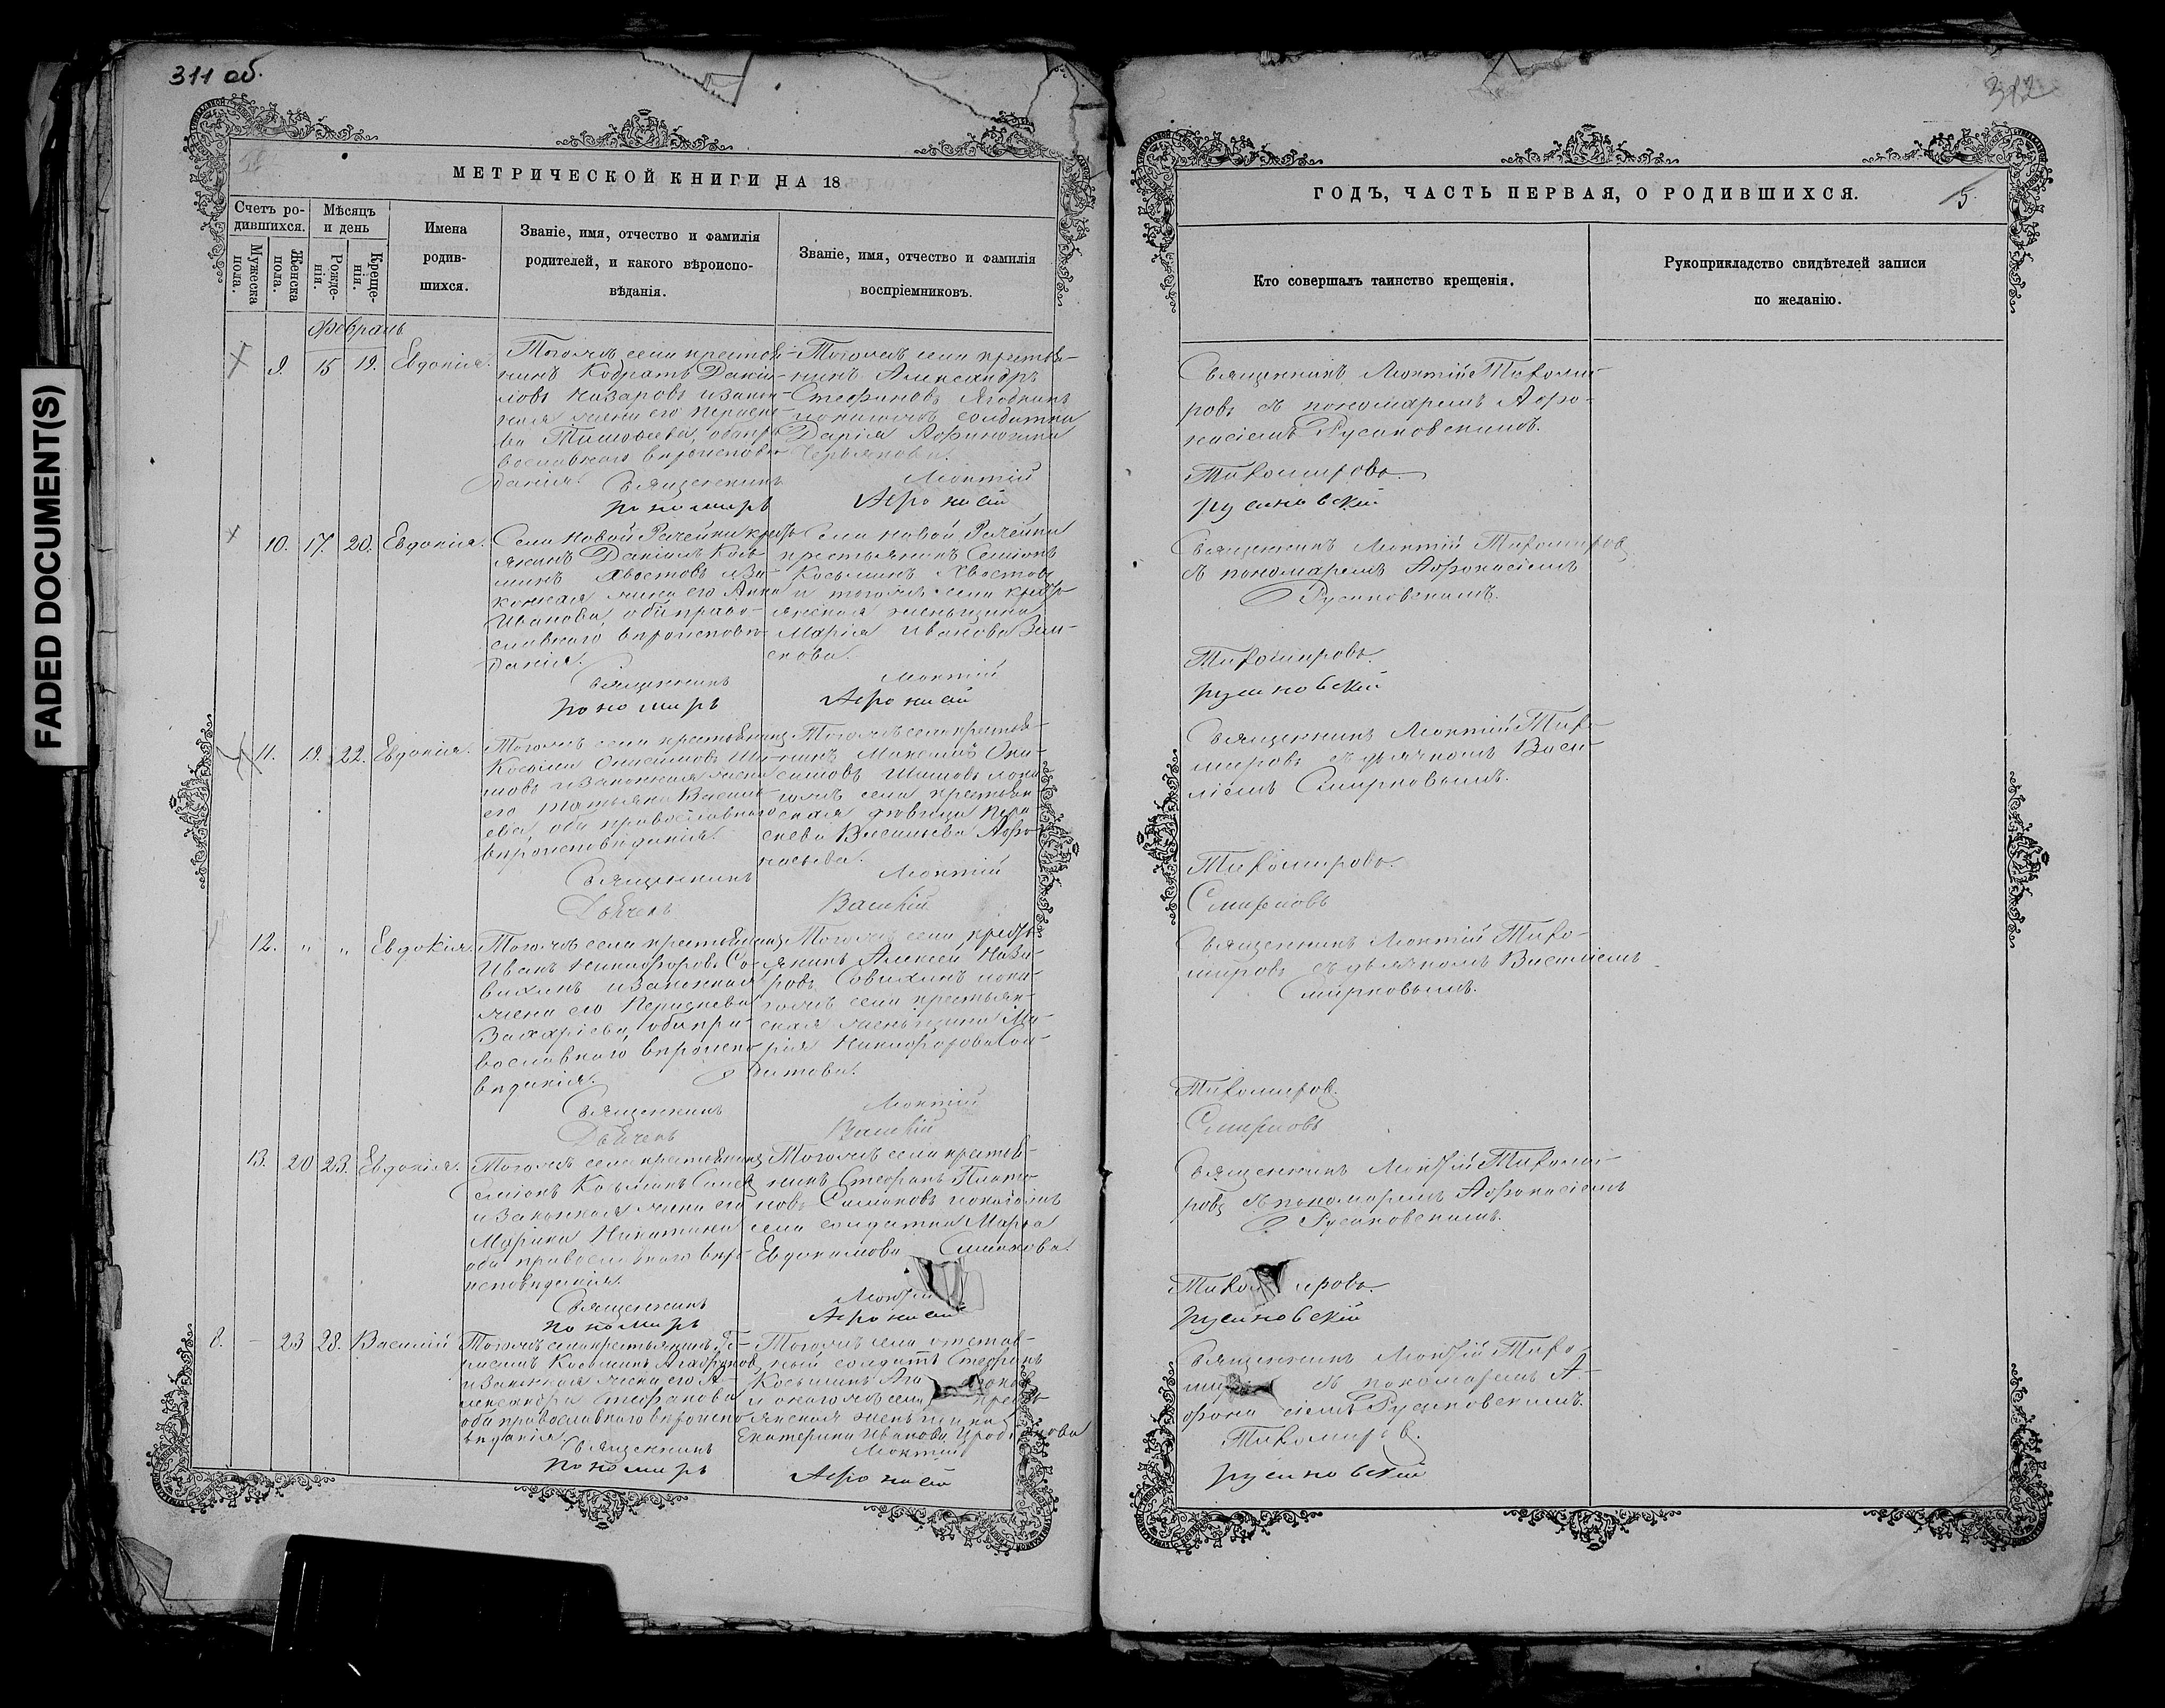 311 об.
312
FADED DOCUMENT(S)
МЕТРИЧЕСКОЙ КНИГИ НА 18
Счетъ ро-
дившихся.
Мужеска
пола.
Женска
пола.
Мѣсяцъ
и день
Рожде-
нія.
Креще-
нія.
Имена
родив-
шихся.
Званіе, имя, отчество и фамилія
родителей, и какого вѣроиспо-
вѣданія.
Званіе, имя, отчество и фамилія
воспріемниковъ.
Февраль
9. 15 19. Евдокія.
Тогожъ села крестья-
нинъ Кодратъ Данiи-
ловъ Назаровъ и закон-
ная жена его Параске-
ва Тимофеева, оба пра-
вославнаго вѣроисповѣ-
данія.
Тогожъ села крестья-
нинъ Александръ
Стефановъ Ягодкинъ
и онагожъ солдатка
Дарія
Священникъ Леонтій
Пономарь Афонасій
10. 17. 20. Евдокія.
Села Новой Рачейки крестья-
янинъ Даніилъ Козь-
минъ Хвостовъ и за-
конная жена его Анна
Иванова, оба право-
славнаго вѣроисповѣ-
данія.
Села Новой Рачейки
крестьянинъ Симеонъ
Косьминъ Хвостовъ
и тогожъ села кресть-
янская женьщина
Марія Иванова
Священникъ Леонтій
Пономарь Афонасій
11. 19. 22. Евдокія.
Тогожъ села крестьянинъ
Косьма Онисимовъ Ши-
шовъ и законная жена
его Татьяна Василь-
ева, оба православнаго
вѣроисповѣданія.
Тогожъ села крестья-
нинъ Максимъ Они-
симовъ Шишовъ и она-
гожъ села крестьян-
ская дѣвица Пара-
скева Васильева Афо-
насьева.
Священникъ Леонтій
Дьячекъ Василій
12. " " Евдокія.
Тогожъ села крестьянинъ
Иванъ Никифоровъ Со-
вихинъ и законная
жена его Параскева
Захаріева, оба пра-
вославнаго вѣроиспо-
вѣданія.
Тогожъ села кресть-
янинъ Алексей Наза-
ровъ Совихинъ и она-
гожъ села крестьян-
ская женьщина Ма-
рія Никифорова
Священникъ Леонтій
Дьячекъ Василій
13. 20 23. Евдокія.
Тогожъ села крестьянинъ
Симіонъ Косьминъ
и законная жена его
Марина Никитина
оба православнаго вѣро-
исповѣданія.
Тогожъ села крестья-
нинъ Стефанъ Плато-
новъ Симаковъ и онагожъ
села солдатка Марфа
Евдокимова Симакова.
Священникъ Леонтій
Пономарь Афонасій
8. - 23 28. Василій
Тогожъ села крестьянинъ
Косьминъ Агафоновъ
и законная жена его А-
лександра Стефанова
оба православнаго вѣроиспо-
вѣданія.
Тогожъ села отстав-
ный солдатъ Стефанъ
Косьминъ
и онагожъ села кресть-
янская женьщина
Екатерина Иванова
Священникъ Леонтій
Пономарь Афонасій
ГОДЪ, ЧАСТЬ ПЕРВАЯ, О РОДИВШИХСЯ. 5.
Кто совершалъ таинство крещенія.
Рукоприкладство свидѣтелей записи
по желанію.
Священникъ Леонтій Тихоми-
ровъ съ пономаремъ Афо-
насіемъ Русановскимъ.
Тихомировъ
Русановскій
Священникъ Леонтій Тихомировъ
съ пономаремъ Афонасіемъ
Русановскимъ.
Тихомировъ.
Русановскій
Священникъ Леонтій Тихо-
мировъ съ дьячкомъ Васи-
ліемъ Смирновымъ.
Тихомировъ.
Смирновъ
Священникъ Леонтій Тихо-
мировъ съ дьячкомъ Василіемъ
Смирновымъ.
Тихомировъ.
Смирновъ
Священникъ Леонтій Тихоми-
ровъ съ пономаремъ Афонасіемъ
Русановскимъ.
Тихомировъ.
Русановскій
Священникъ Леонтій Тихо-
съ пономаремъ А-
фонасіемъ Русановскимъ.
Тихомировъ.
Русановскій